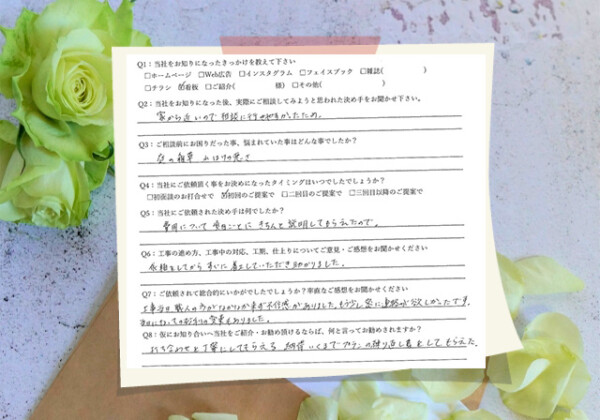 Q1：当社をお知りになったきっかけを教えて下さい
□ホームページ □Web広告 □インスタグラム □フェイスブック □雑誌( )
□チラシ ☑看板 □ご紹介( 様) □その他( )
Q2：当社をお知りになった後、実際にご相談してみようと思われた決め手をお聞かせ下さい。
家から近いので相談に行きやすかったため。
Q3：ご相談前にお困りだった事、悩まれていた事はどんな事でしたか？
庭の雑草
Q4：当社にご依頼頂く事をお決めになったタイミングはいつでしたでしょうか？
□初面談のお打合せで ☑初回のご提案で □二回目のご提案で □三回目以降のご提案で
Q5：当社にご依頼された決め手は何でしたか？
費用について項目ごとにきちんと説明してもらえたので。
Q6：工事の進め方、工事中の対応、工期、仕上りについてご意見・ご感想をお聞かせください
依頼をしてからすぐに着工していただき助かりました。
Q7：ご依頼されて総合的にいかがでしたでしょうか？率直なご感想をお聞かせください
工事当日職人の方がなかなか来ず不信感がありました。もう少し密に連絡が欲しかったです。
変更もありました。
Q8：仮にお知り合いへ当社をご紹介・お勧め頂けるならば、何と言ってお勧めされますか？
打ち合わせを丁寧にしてもらえる 納得いくまでプランの練り直しをしてもらえた